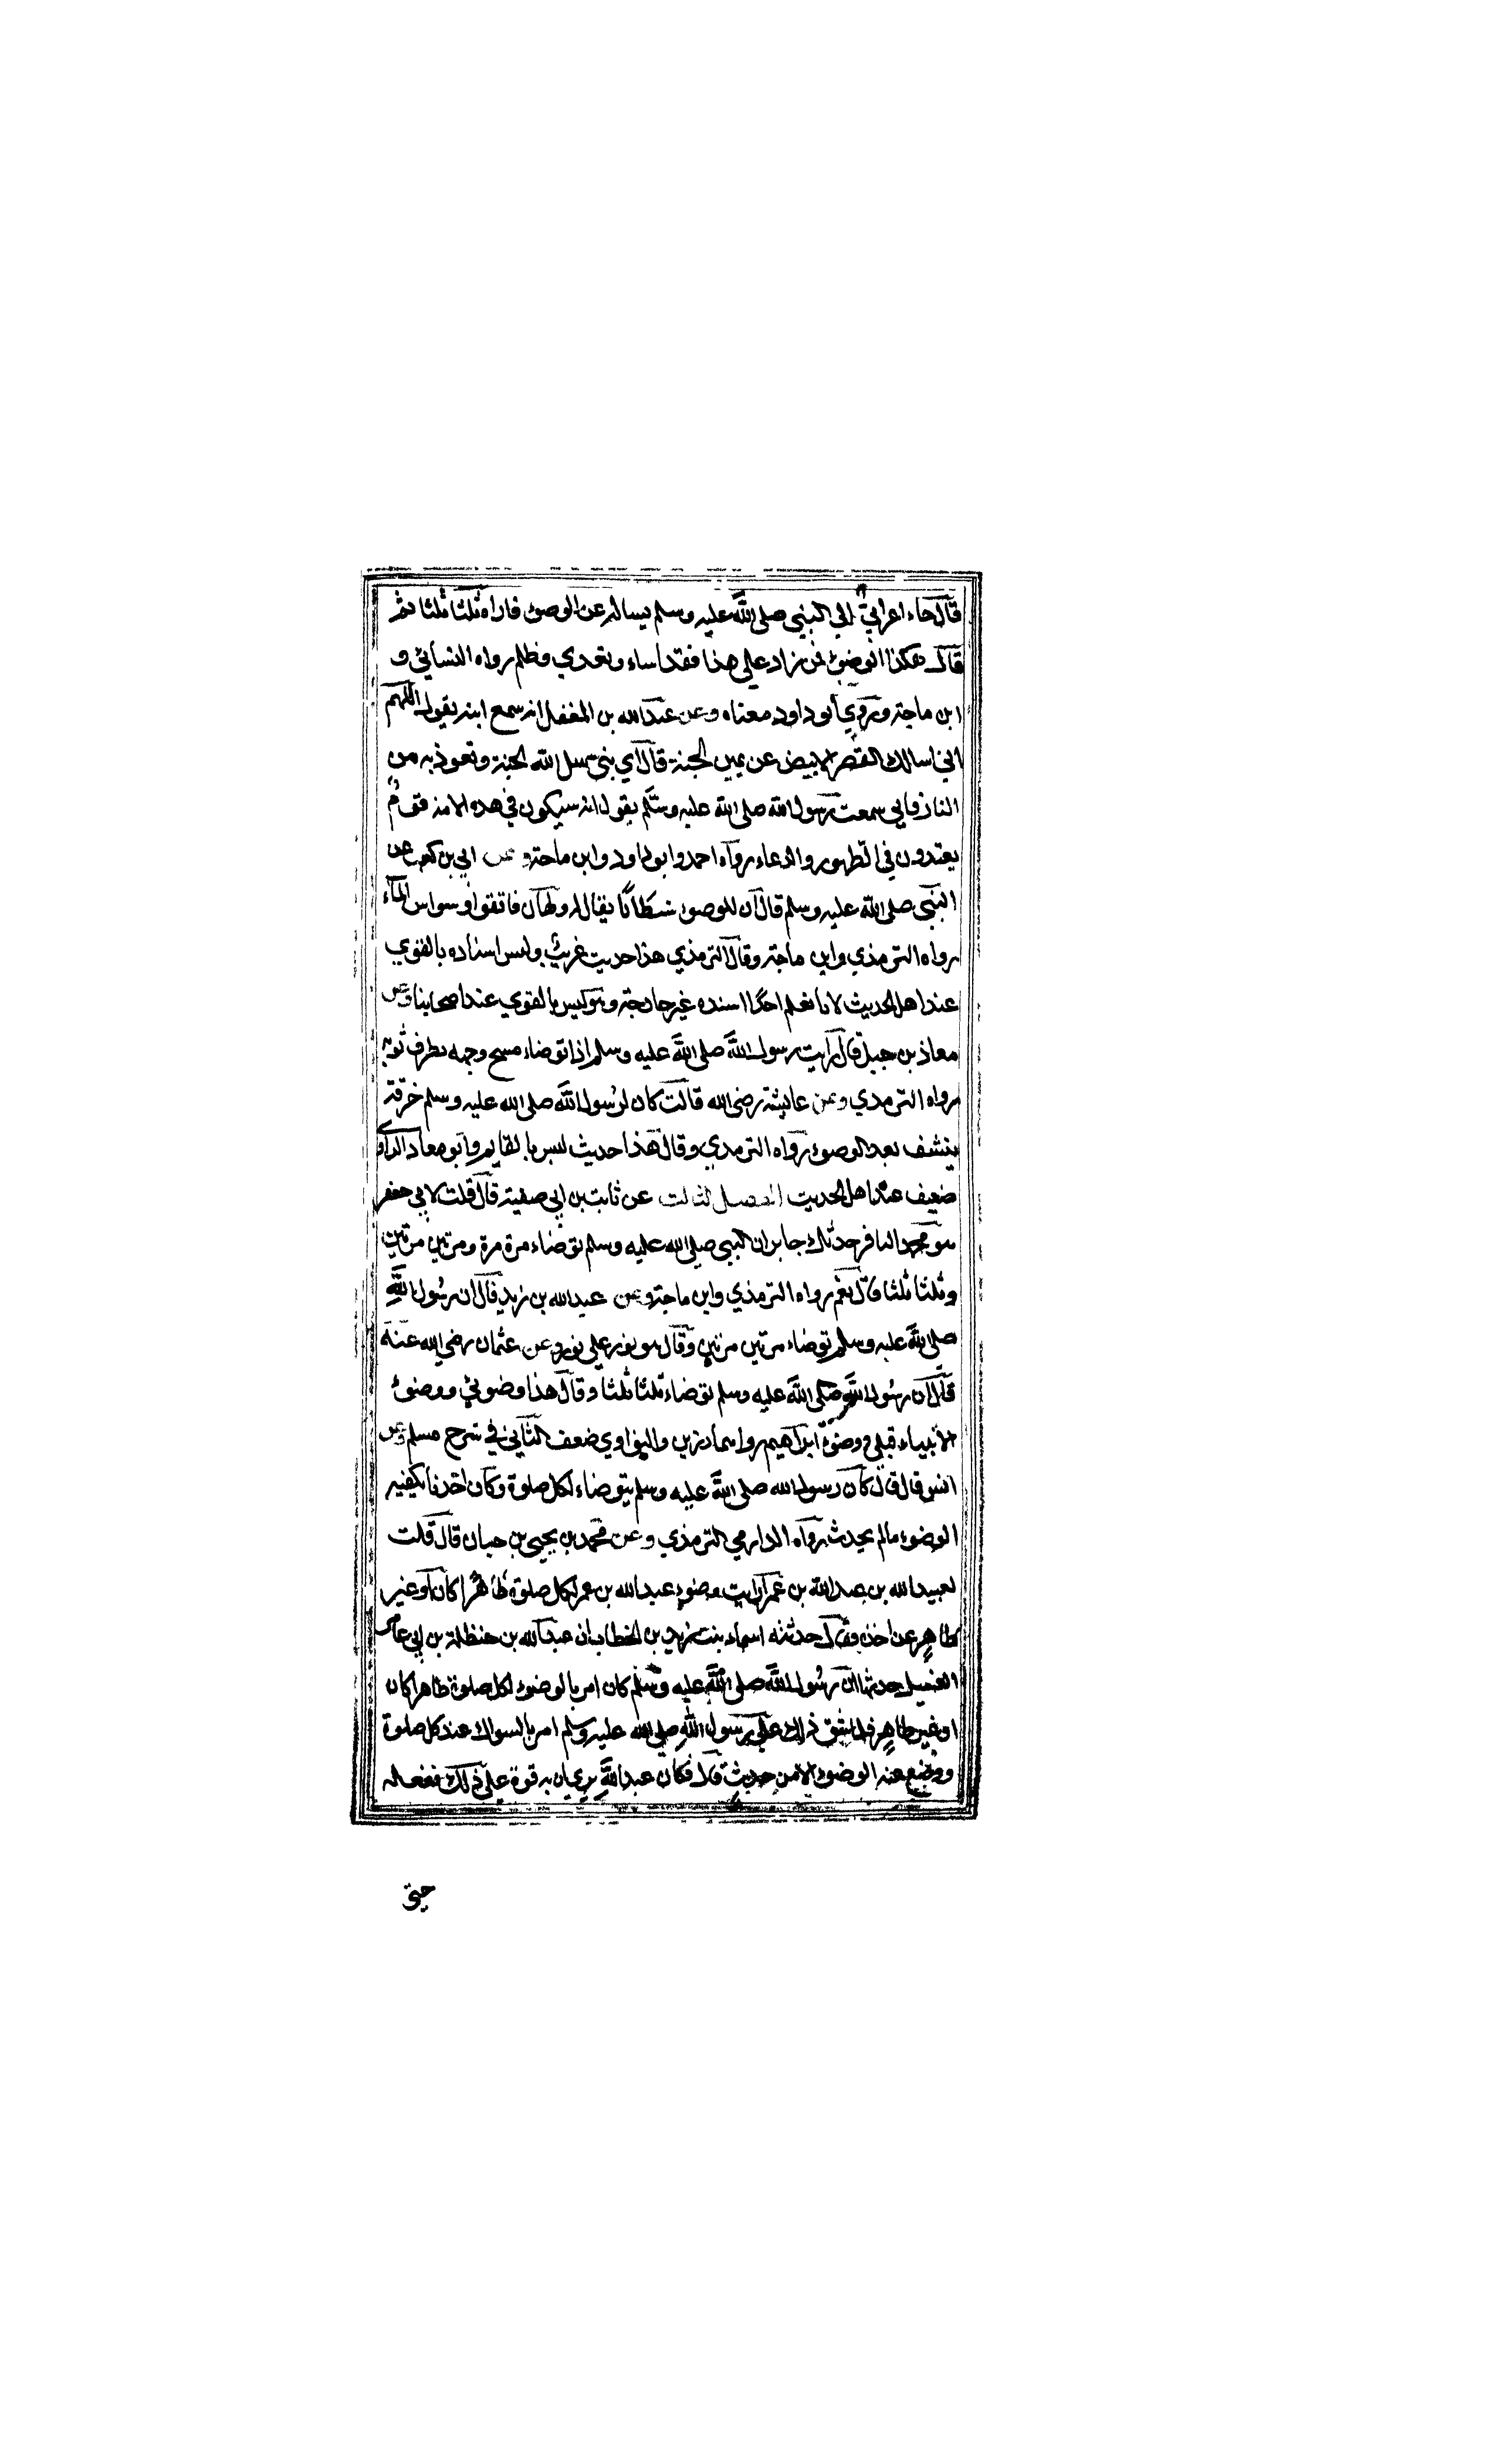 قال جاء اعرابي الي النبي صلي الله عليه وسلم يساله عن الوضوء فاراه ثلثا ثلثا ثم
قال هكذا الوضوء فمن زاد علي هذا فقد اساء وتعدي وظلم رواه النسائي و
ابن ماجة وروي ابو داود معناه وعن عبدالله بن المغفل انه سمع ابنه يقول اللهم
اني اسالك القصر الابيض عن يمين الجنة قال اي بني سل الله الجنة وتعوذ به من
النار فاني سمعت رسول الله صلي الله عليه وسلم يقول انه سيكون في هذه الامة قوم
يعتدون في الطهور والدعاء رواه احمد وابو داود وابن ماجة وعن ابي بن كعب عن
النبي صلي الله عليه وسلم قال ان للوضوء شيطانا يقال له ولهان فاتقوا وسواس الماء
رواه الترمذي وابن ماجة وقال الترمذي هذا حديث غريب وليس اسناده بالقوي
عند اهل الحديث لانا نعلم احدا اسنده غير خارجة وهو ليس بالقوي عند اصحابنا وعن
معاذ بن جبل قال رايت رسول الله صلي الله عليه وسلم اذا توضاء مسح وجهه بطرف ثوبه
رواه الترمذي وعن عايشة رضي الله قالت كان لرسول الله صلي الله عليه وسلم خرقة
ينشف بعد الوضوء رواه الترمذي وقال هذا حديث ليس بالقايم وابو معاذ الراوي
ضعيف عند اهل الحديث الفصل الثالث عن ثابت بن ابي صفية قال قلت لابي جعفر
هو محمد الباقر حدثك جابر ان النبي صلي الله عليه وسلم توضاء مرة مرة ومرتين مرتين
وثلثا ثلثا قال نعم رواه الترمذي وابن ماجة وعن عبدالله بن زيد قال ان رسول الله
صلي الله عليه وسلم توضاء مرتين مرتين وقال هو نور علي نور وعن عثمان رضي الله عنه
قال ان رسول الله صلي الله عليه وسلم توضاء ثلثا ثلثا وقال هذا وضوئي ووضوء
الانبياء قبلي ووضوء ابراهيم رواهما رزين والنواوي ضعف الثاني في شرح مسلم وعن
انس قال قال كان رسول الله صلي الله عليه وسلم يتوضاء لكل صلوة وكان احدنا يكفيه
الوضوء مالم يحدث رواه الدارمي الترمذي وعن محمد بن يحيي بن حبان قال قلت
لعبيد الله بن عبد الله بن عمر ارايت وضوء عبد الله بن عمر لكل صلوة طاهرا كان او غير
طاهر عن اخذه فقال حدثته اسماء بنت زيد بن الخطاب ان عبد الله بن حنظلة بن ابي عامر
الغسيل حدثها ان رسول الله صلي الله عليه وسلم كان امر بالوضوء لكل صلوة طاهرا كان
او غير طاهر فلما شق ذلك علي رسول الله صلي الله عليه وسلم امر بالسواك عند كل صلوة
ووضع عنه الوضوء الا من حدث قال فكان عبد الله يري ان به قوة علي ذلك ففعله
حتي